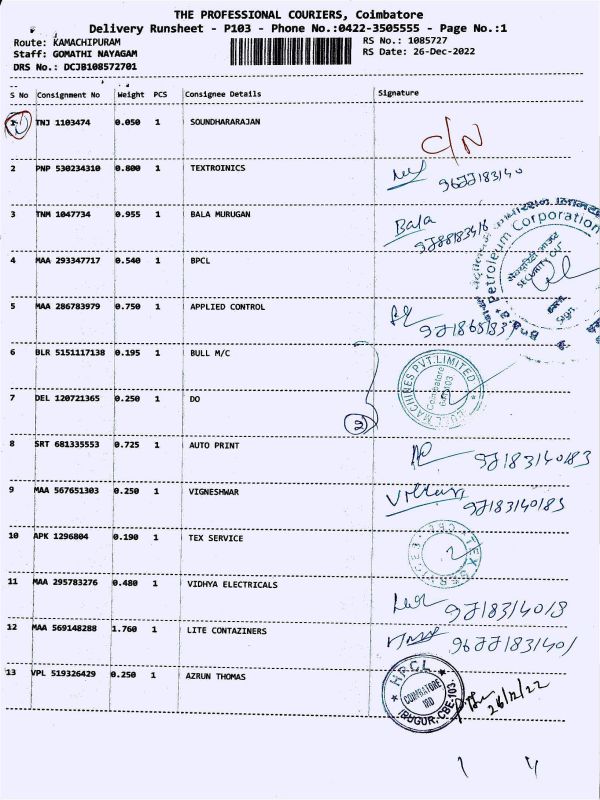 THE PROFESSIONAL COURIERS, Coimbatore
Delivery Runsheet - P103 - Phone No.:0422-3505555 - Page No.:1
Route: KAMACHIPURAM
RS No.: 1085727
Staff: GOMATHI NAYAGAM
RS Date: 26-Dec-2022
DRS No.: DCJB108572701
S No Consignment No Weight PCS Consignee Details Signature
1 TNJ 1103474 0.050 1 SOUNDHARARAJAN
C/N
2 PNP 530234310 0.800 1 TEXTROINICS
3 TNM 1047734 0.955 1 BALA MURUGAN
Bala
4 MAA 293347717 0.540 1 BPCL
Petroleum Corporation
SECURITY
Sign.
5 MAA 286783979 0.750 1 APPLIED CONTROL
6 BLR 5151117138 0.195 1 BULL M/C
MACHINES PVT.LIMITED
Coimbatore
7 DEL 120721365 0.250 1 DO
2
8 SRT 681335553 0.725 1 AUTO PRINT
9 MAA 567651303 0.250 1 VIGNESHWAR
10 APK 1296804 0.190 1 TEX SERVICE
11 MAA 295783276 0.480 1 VIDHYA ELECTRICALS
12 MAA 569148288 1.760 1 LITE CONTAZINERS
13 VPL 519326429 0.250 1 AZRUN THOMAS
HPCL
COIMBATORE
IRD
IRUGUR, CBE-103.
26/12/22